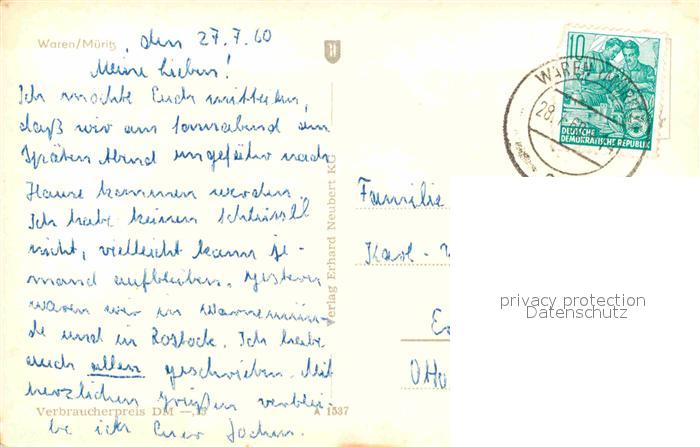 Waren/Müritz, den 27.7.60
Meine Lieben!
Ich möchte Euch mitteilen,
daß wir am Sonnabend am
späten Abend ungefähr nach
Hause kommen werden.
Ich habe keinen Schlüssel
nicht, vielleicht kann je-
mand aufbleiben. Gestern
waren wir in Warnemün-
de und in Rostock. Ich habe
auch allen geschrieben. Mit
herzlichen Grüßen verblei-
be ich Euer Jochen.
Verbraucherpreis DM —,15
A 1537
Verlag Erhard Neubert KG
10
DEUTSCHE
DEMOKRATISCHE REPUBLIK
WAREN (MÜRITZ)
Familie
Karl -
Otto
privacy protection
Datenschutz